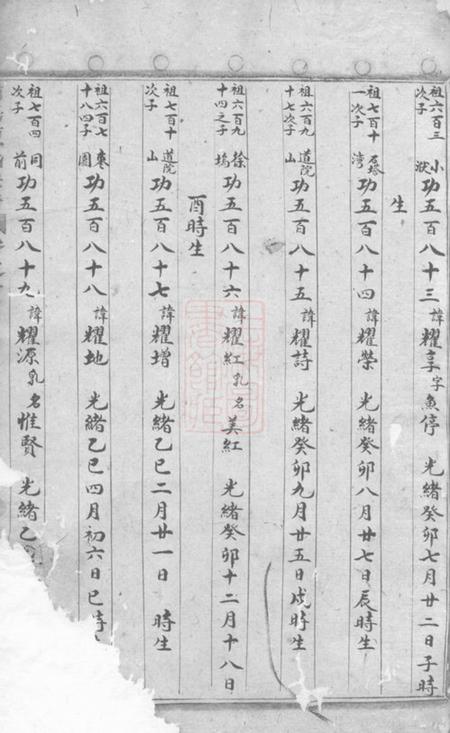 祖六百三次子 小狀 功五百八十三 諱耀享 字魚停 光緒癸卯七月廿二日子時
生
祖七百十一次子 石塔湾 功五百八十四 諱耀榮 光緒癸卯八月廿七日辰時生
祖六百九十七次子 道院山 功五百八十五 諱耀詩 光緒癸卯九月廿五日戌時生
祖六百九十四之子 徐塢 功五百八十六 諱耀紅 乳名美紅 光緒癸卯十二月十八日
酉時生
祖七百十次子 道院山 功五百八十七 諱耀增 光緒乙巳二月廿一日 時生
祖六百七十八四子 棗園 功五百八十八 諱耀地 光緒乙巳四月初六日巳時
祖七百四次子 同前 功五百八十九 諱耀源 乳名惟賢 光緒乙